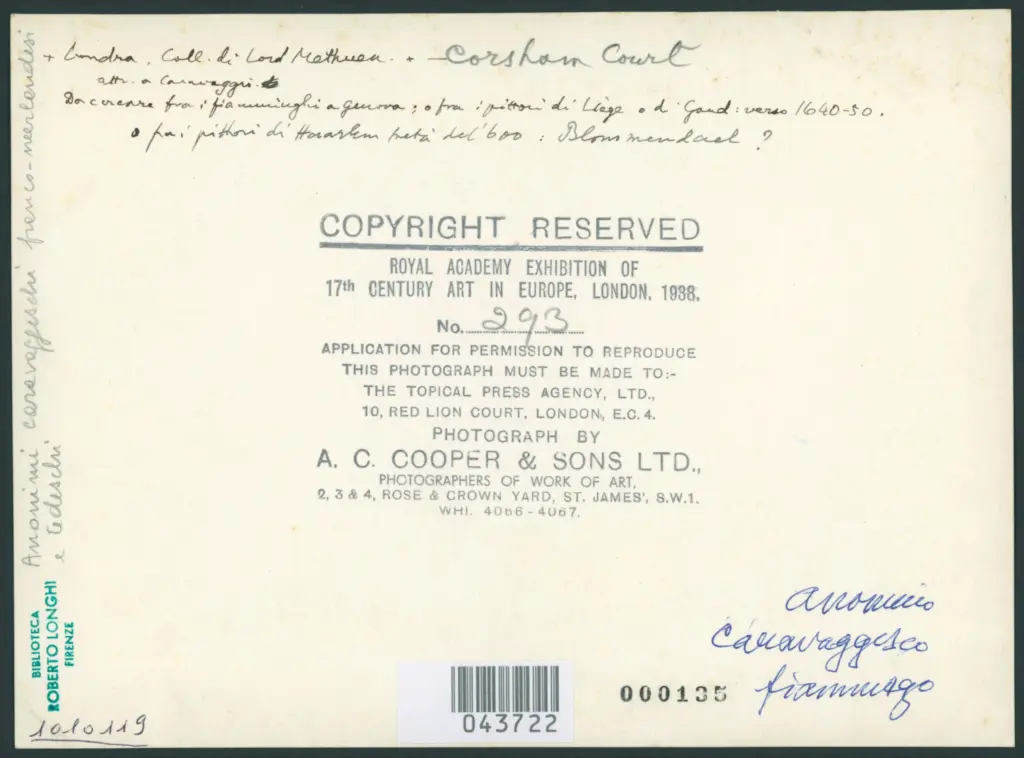 + Londra, Coll. di Lord Methuen. + - Corsham Court
attr. a Caravaggio.
Da cercare fra i fiamminghi a Genova; o fra i pittori di Liège o di Gand: verso 1640-50.
o fra i pittori di Haarlem metà del '600: Blommendael?
Anonimi caravaggeschi franco-neerlandesi
e tedeschi
COPYRIGHT RESERVED
ROYAL ACADEMY EXHIBITION OF
17th CENTURY ART IN EUROPE, LONDON, 1938.
No. 293
APPLICATION FOR PERMISSION TO REPRODUCE
THIS PHOTOGRAPH MUST BE MADE TO:-
THE TOPICAL PRESS AGENCY, LTD.,
10, RED LION COURT, LONDON, E.C.4.
PHOTOGRAPH BY
A. C. COOPER & SONS LTD.,
PHOTOGRAPHERS OF WORK OF ART,
2, 3 & 4, ROSE & CROWN YARD, ST. JAMES', S.W.1.
WHI. 4066-4067.
BIBLIOTECA
ROBERTO LONGHI
FIRENZE
1010119
043722
000135
Anonimo
Caravaggesco
fiammingo